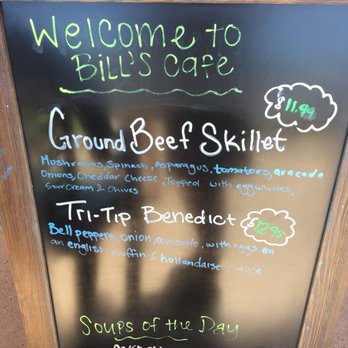 Welcome to
Bill's Cafe
$11.99
Ground Beef Skillet
Mushrooms, Spinach, Asparagus, tomatoes, avocado
Onions, Cheddar Cheese, Topped with egg whites,
Sour Cream & Chives
Tri-Tip Benedict $12.95
Bell peppers, onion, avocado, with eggs on
an english muffin & hollandaise sauce
Soups of the Day